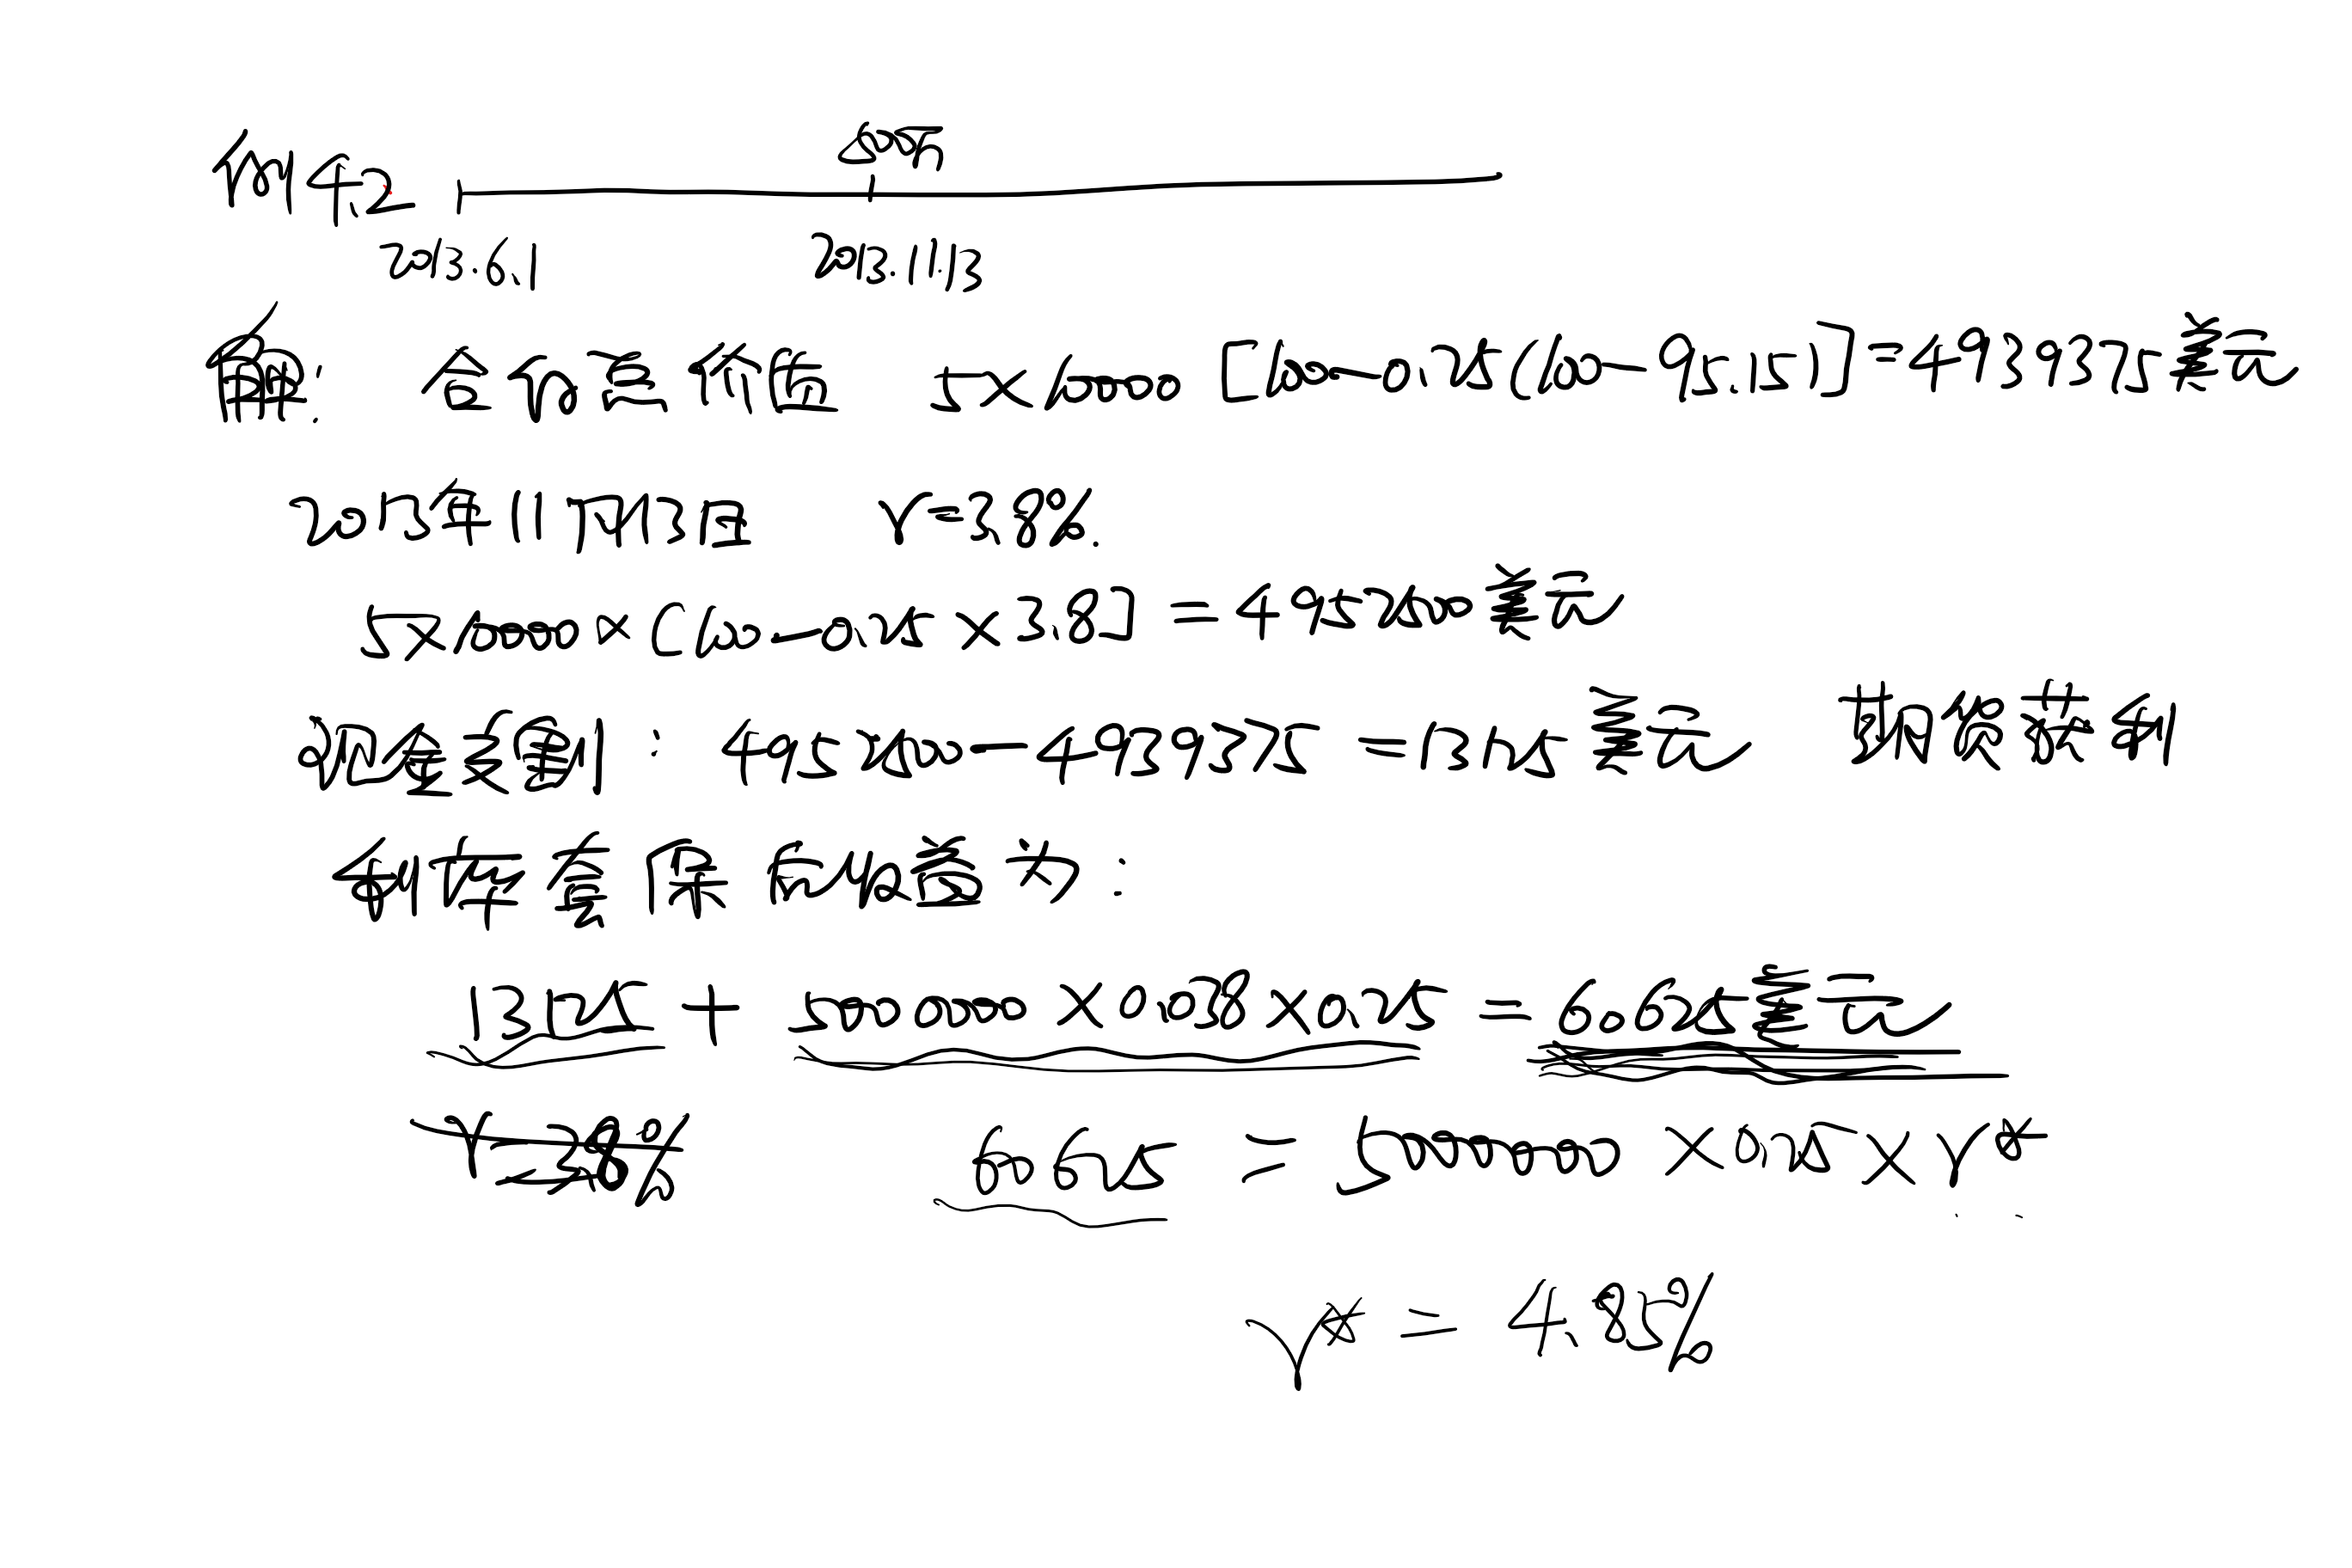 500万
例4.2
2013.6.1 2013.11.13
解: 合约总价值 5×10000 [100-0.25(100-95.15)]=4939375美元
2013年11月13日 r=3.8%.
5×10000×[100-0.25×3.8] =4952500美元
: 4952500-4939375 =13125美元 期货获利
利存 为:
13125 + 5000000×0.038×0.25 = 60625美元
r=3.8% 60625 = 5000000 ×0.25×r*
r* = 4.85%